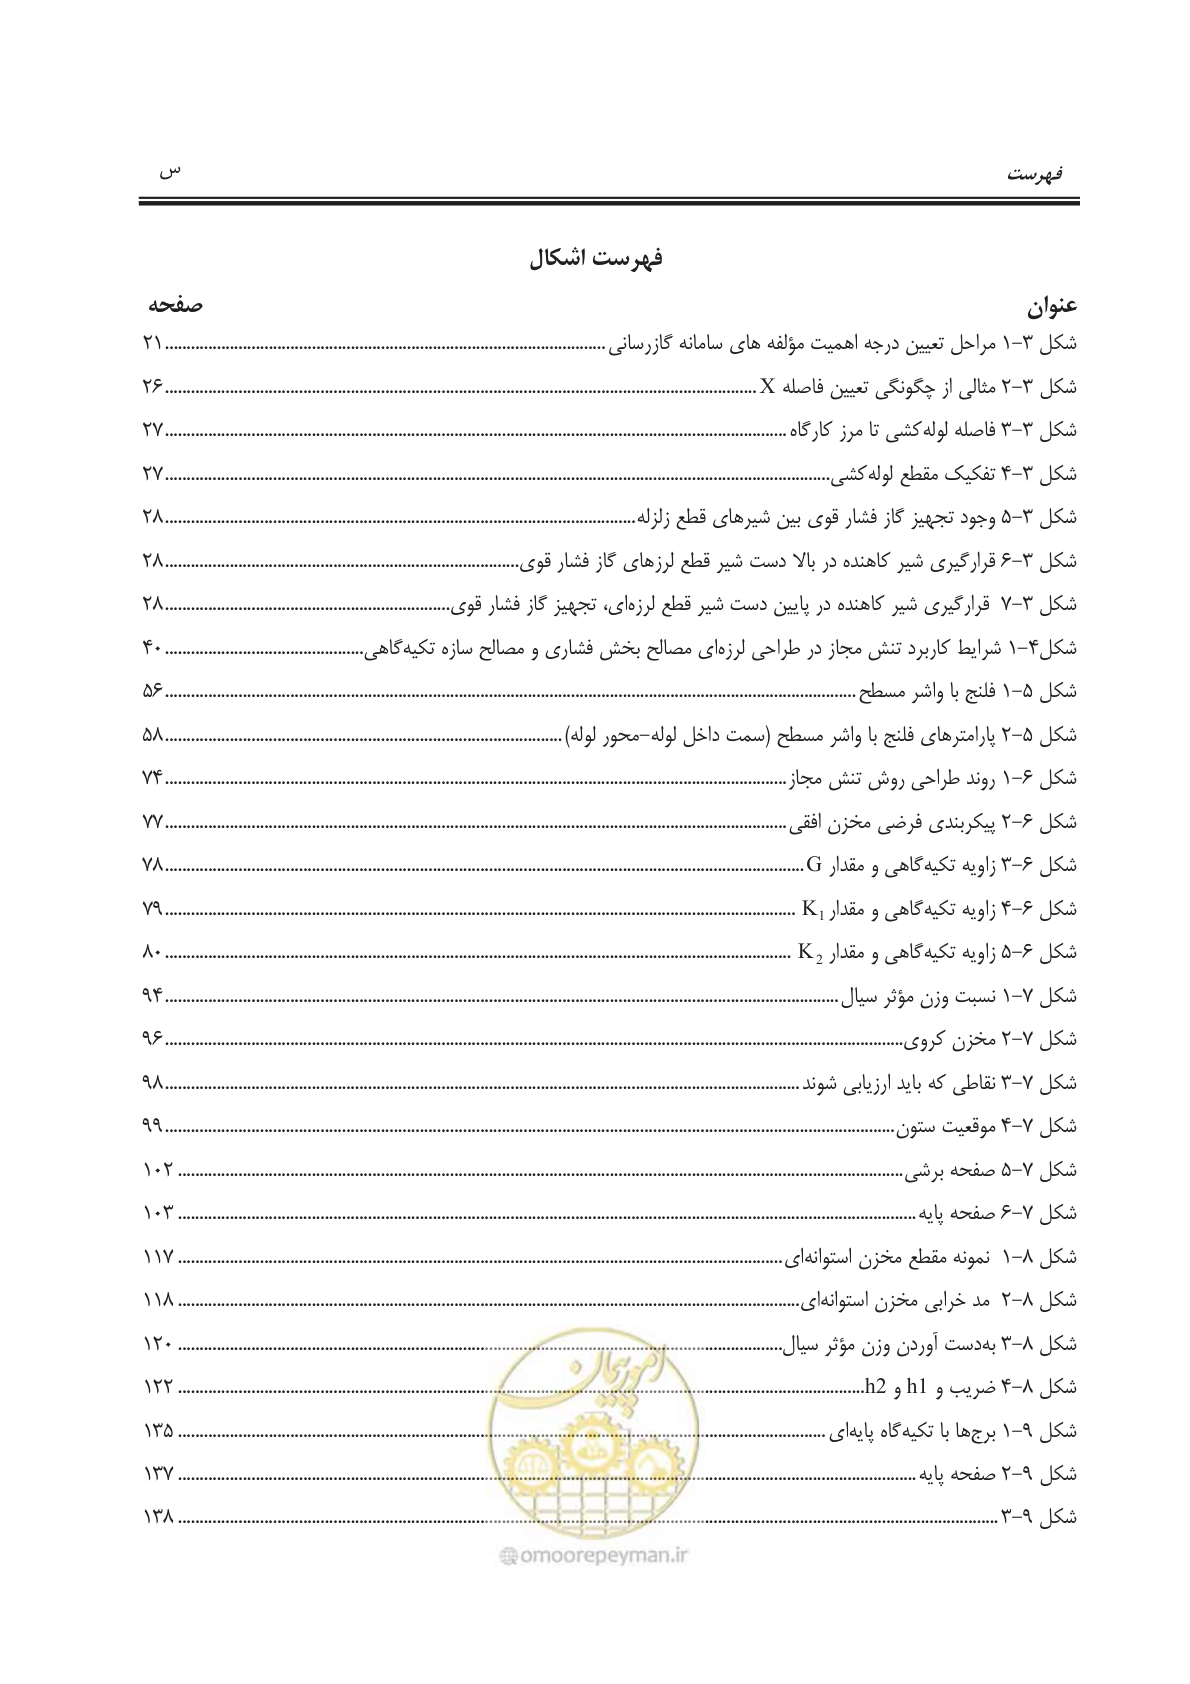 فهرست س
فهرست اشکال
عنوان صفحه
شکل ۳-۱ مراحل تعیین درجه اهمیت مؤلفه های سامانه گازرسانی ........ ۲۱
شکل ۳-۲ مثالی از چگونگی تعیین فاصله X ........ ۲۶
شکل ۳-۳ فاصله لوله‌کشی تا مرز کارگاه ........ ۲۷
شکل ۳-۴ تفکیک مقطع لوله‌کشی ........ ۲۷
شکل ۳-۵ وجود تجهیز گاز فشار قوی بین شیرهای قطع زلزله ........ ۲۸
شکل ۳-۶ قرارگیری شیر کاهنده در بالا دست شیر قطع لرزهای گاز فشار قوی ........ ۲۸
شکل ۳-۷ قرارگیری شیر کاهنده در پایین دست شیر قطع لرزه‌ای، تجهیز گاز فشار قوی ........ ۲۸
شکل۴-۱ شرایط کاربرد تنش مجاز در طراحی لرزه‌ای مصالح بخش فشاری و مصالح سازه تکیه‌گاهی ........ ۴۰
شکل ۵-۱ فلنج با واشر مسطح ........ ۵۶
شکل ۵-۲ پارامترهای فلنج با واشر مسطح (سمت داخل لوله-محور لوله) ........ ۵۸
شکل ۶-۱ روند طراحی روش تنش مجاز ........ ۷۴
شکل ۶-۲ پیکربندی فرضی مخزن افقی ........ ۷۷
شکل ۶-۳ زاویه تکیه‌گاهی و مقدار G ........ ۷۸
شکل ۶-۴ زاویه تکیه‌گاهی و مقدار K1 ........ ۷۹
شکل ۶-۵ زاویه تکیه‌گاهی و مقدار K2 ........ ۸۰
شکل ۷-۱ نسبت وزن مؤثر سیال ........ ۹۴
شکل ۷-۲ مخزن کروی ........ ۹۶
شکل ۷-۳ نقاطی که باید ارزیابی شوند ........ ۹۸
شکل ۷-۴ موقعیت ستون ........ ۹۹
شکل ۷-۵ صفحه برشی ........ ۱۰۲
شکل ۷-۶ صفحه پایه ........ ۱۰۳
شکل ۸-۱ نمونه مقطع مخزن استوانه‌ای ........ ۱۱۷
شکل ۸-۲ مد خرابی مخزن استوانه‌ای ........ ۱۱۸
شکل ۸-۳ به‌دست آوردن وزن مؤثر سیال ........ ۱۲۰
شکل ۸-۴ ضریب و h1 و h2 ........ ۱۲۲
شکل ۹-۱ برج‌ها با تکیه‌گاه پایه‌ای ........ ۱۳۵
شکل ۹-۲ صفحه پایه ........ ۱۳۷
شکل ۹-۳ ........ ۱۳۸
امور پیمان
@omoorepeyman.ir